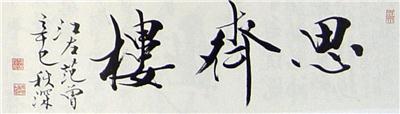 思齊樓
江左范曾
辛巳秋深